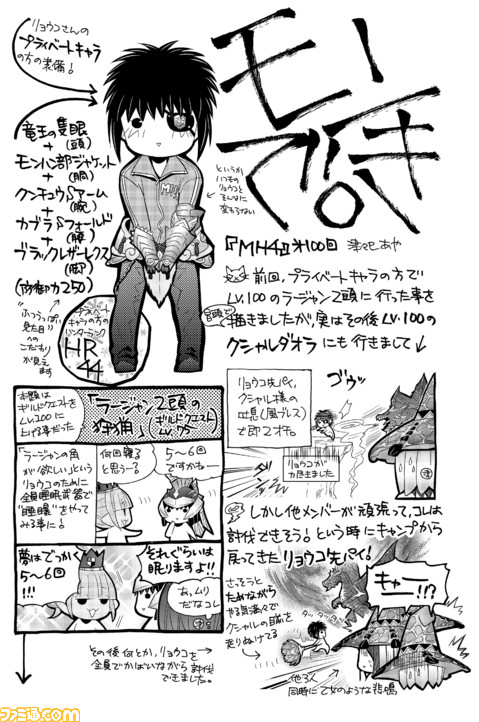 モンでき。
『MH4』第100回 津々巳あや
リョウコさんの
プライベートキャラ
の方の装備!
竜王の隻眼
(頭)
+
モンハン部ジャケット
(胴)
+
クンチュウSアーム
(腕)
+
カブラSフォールド
(腰)
+
ブラックレザーレクス
(脚)
(防御力250)
というか
いつもの
リョウコと
そんなに
変わらない
プライベート
キャラの方の
ハンターランク
HR
44
ふつうっぽい
見た目
へのこだわり
が見え
ます
前回、プライベートキャラの方で
Lv.100のラージャン2頭に行った事を
冒頭で
描きましたが、実はその後Lv.100の
クシャルダオラにも行きまして
リョウコ先パイ、
クシャル様の
吐息(風ブレス)
で即2オチ。
ゴウッ
リョウコが
力尽きました
しかし他メンバーが頑張って、コレは
討伐できそう!という時にキャンプから
戻ってきたリョウコ先パイ!
さっそうと
ためながら
やる気満々で
クシャルの目前を
走りぬけてる
タッタッタッ
キャー
ーー!!?
他3人
同時に乙女のような悲鳴
本題は
ギルドクエストを
Lv.100に
上げる事だった
「ラージャン2頭の
狩猟」
ギルドクエスト
「ラージャンの角
が欲しい」という
リョウコのために
全員睡眠武器で
"睡眠"をやって
みる事に!
何回寝る
と思うー?
5〜6回
ですかねー
夢はでっかく
5〜6回
!!!
それぐらいは
眠りますよ!!
あ、ムリ
だなコレ
その後何とか、リョウコを
全員でかばいながら討伐
できました。
ファミ通.com